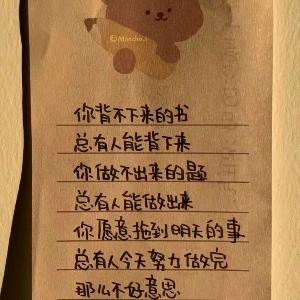 ©Mancho.i
你背不下来的书
总有人能背下来
你做不出来的题
总有人能做出来
你愿意拖到明天的事
总有人今天努力做完
那么不好意思